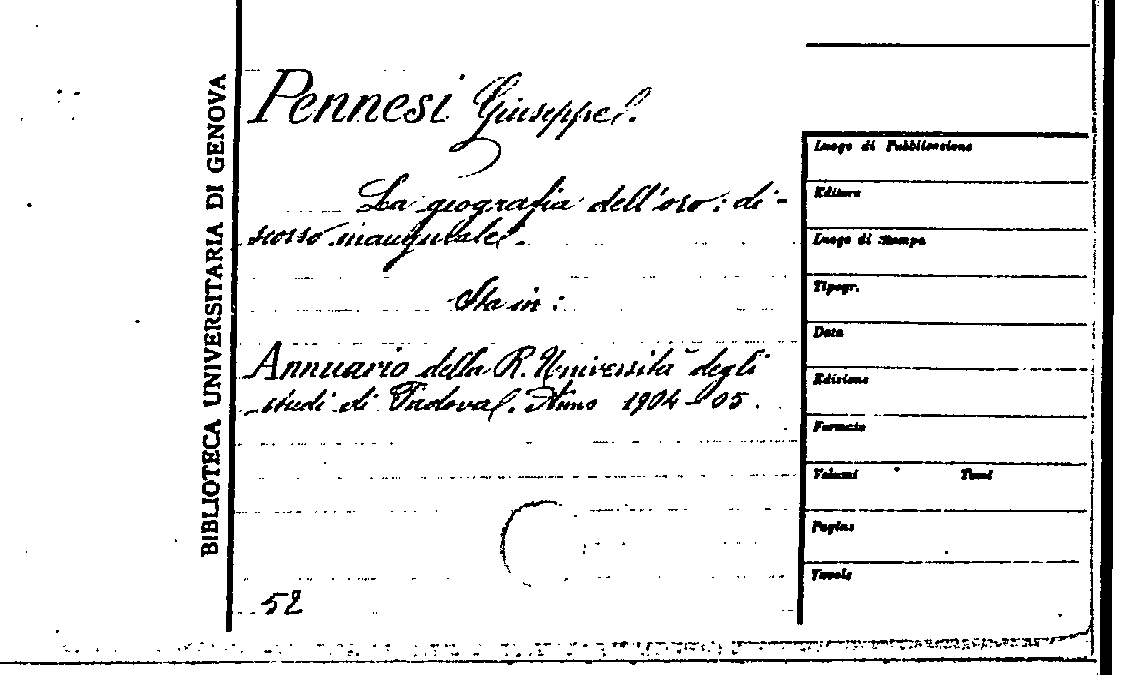 BIBLIOTECA UNIVERSITARIA DI GENOVA
Pennesi Giuseppe.
La geografia dell'oro: di-
scorso inaugurale.
Sta in:
Annuario della R. Università degli
studi di Padova. Anno 1904-05.
52
Luogo di Pubblicazione
Editore
Luogo di Stampa
Tipogr.
Data
Edizione
Formato
Volumi Tomi
Pagine
Tavole